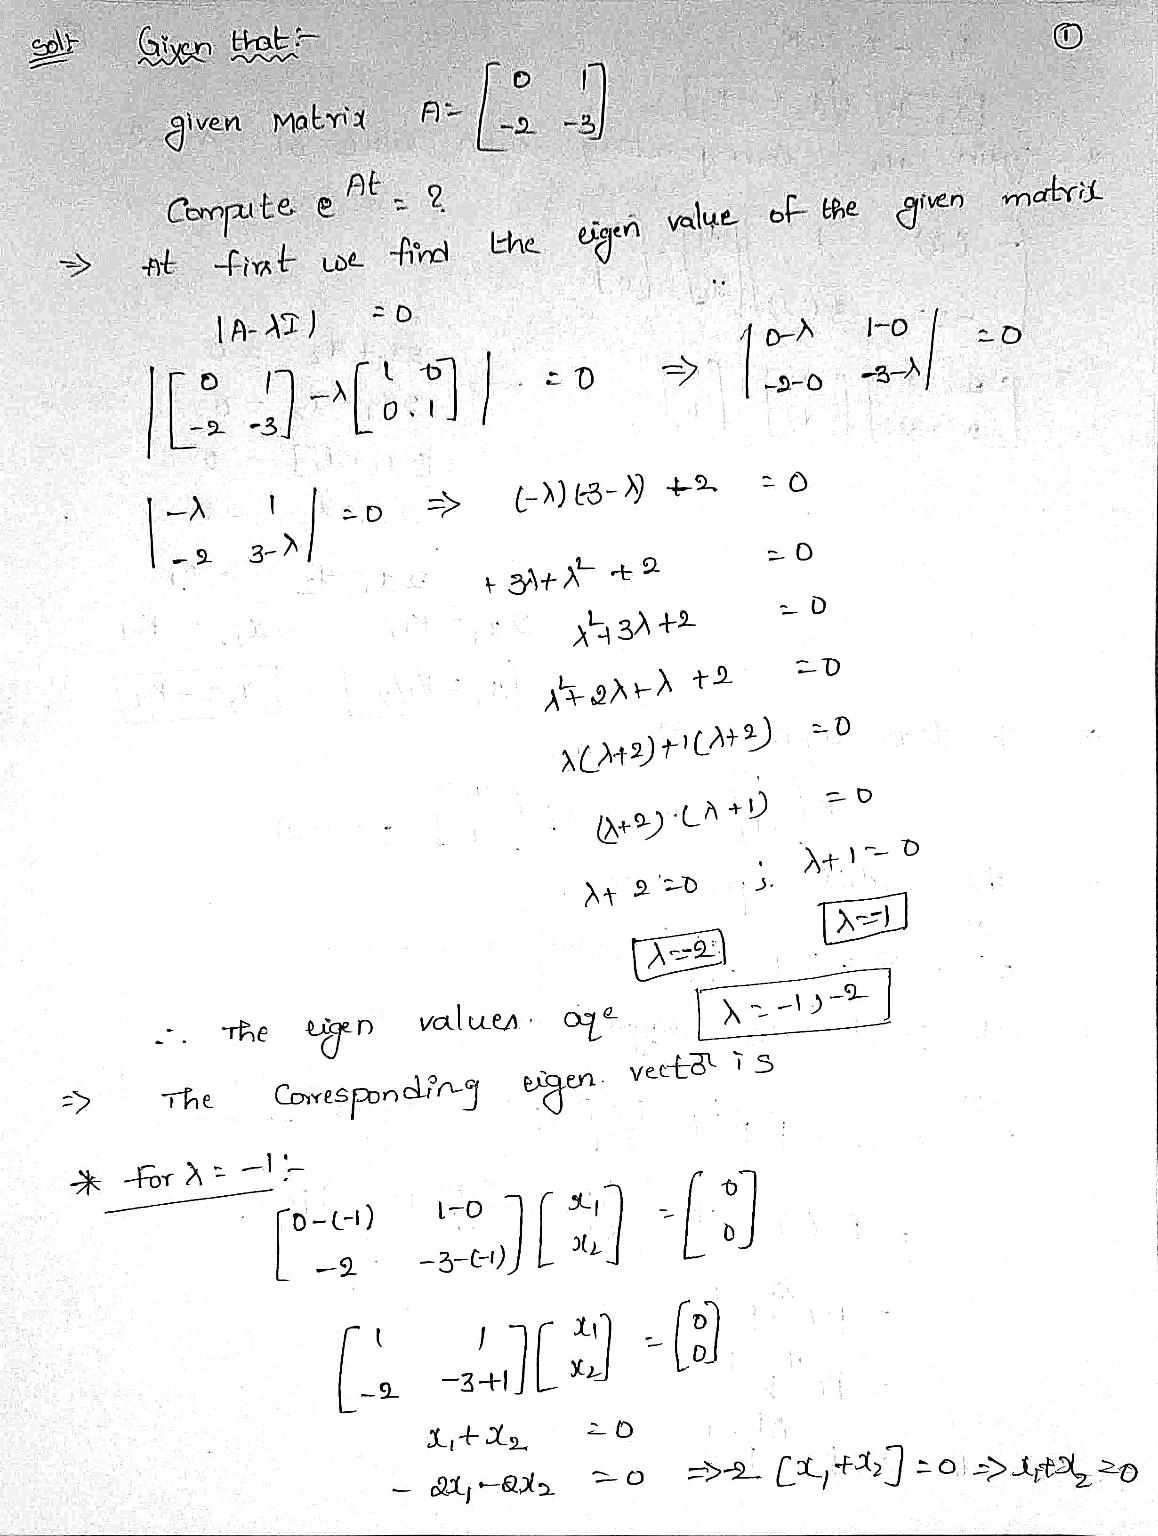 Solt Given that :- ①
given Matrix A = [0 1; -2 -3]
Compute e^At = ?
⇒ At first we find the eigen value of the given matrix
|A-λI| = 0
|[0 1; -2 -3] -λ[1 0; 0 1]| = 0 ⇒ |0-λ 1-0; -2-0 -3-λ| = 0
|-λ 1; -2 3-λ| = 0 ⇒ (-λ)(-3-λ) +2 = 0
+ 3λ+λ² +2 = 0
λ²+3λ+2 = 0
λ²+2λ+λ+2 = 0
λ(λ+2)+1(λ+2) = 0
(λ+2)·(λ+1) = 0
λ+2=0 ; λ+1=0
λ=-2 λ=-1
∴ The eigen values are λ = -1,-2
⇒ The Corresponding eigen vector is
* for λ = -1 :-
[0-(-1) 1-0; -2 -3-(-1)] [x₁; x₂] = [0; 0]
[1 1; -2 -3+1] [x₁; x₂] = [0; 0]
x₁+x₂ = 0
- 2x₁-2x₂ = 0 ⇒-2 [x₁+x₂] = 0 ⇒ x₁+x₂ = 0